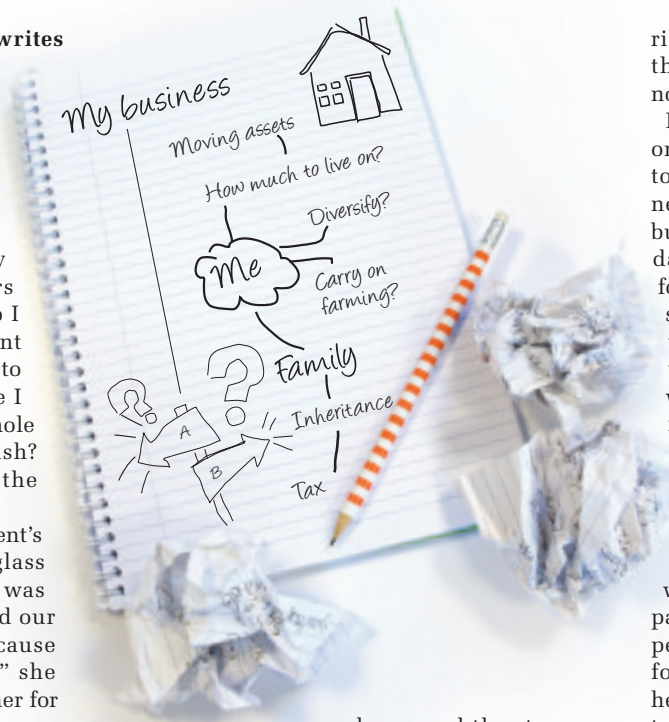 writes
My business
Moving assets
How much to live on?
Diversify?
Me
Carry on
farming?
Family
Inheritance
Tax
A
B
o I
nt
to
e I
hole
ish?
the
ent's
glass
was
d our
cause
" she
her for
ri
th
to
bu
da
fo
pa
pe
fo
he